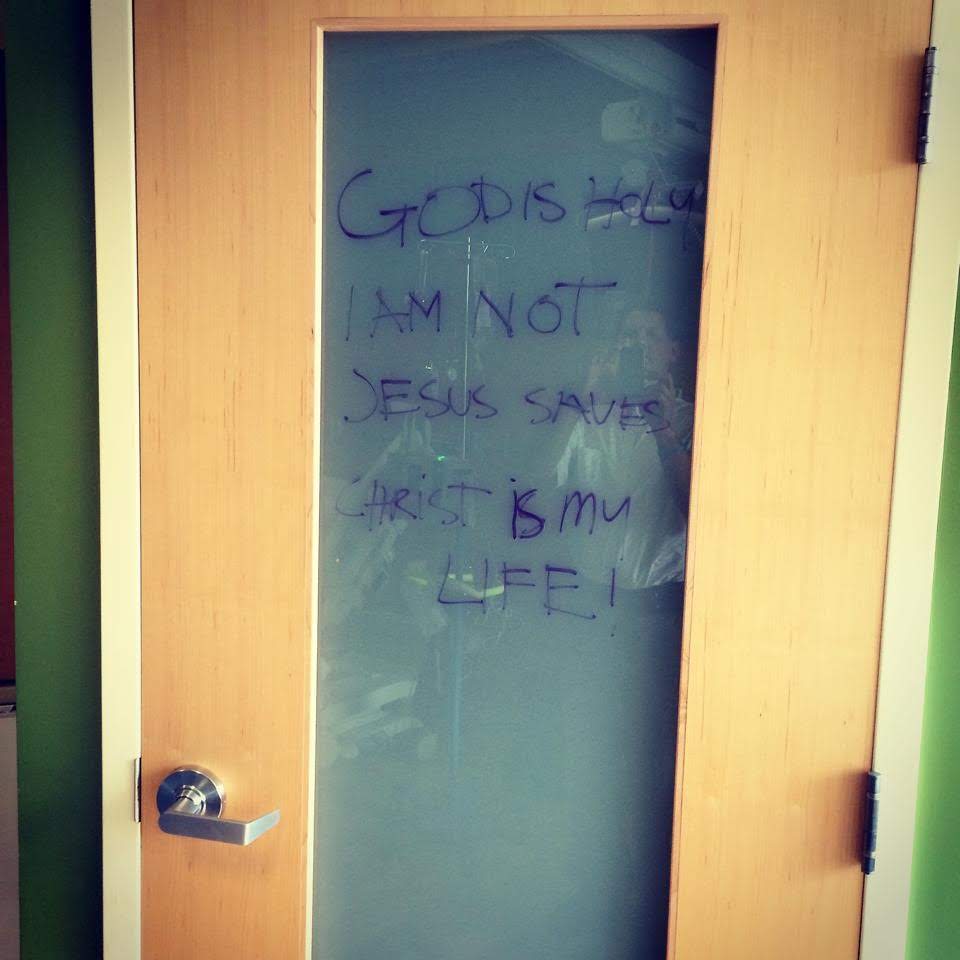 GOD IS HOLY
I AM NOT
JESUS SAVES
CHRiST iS my
LIFE!